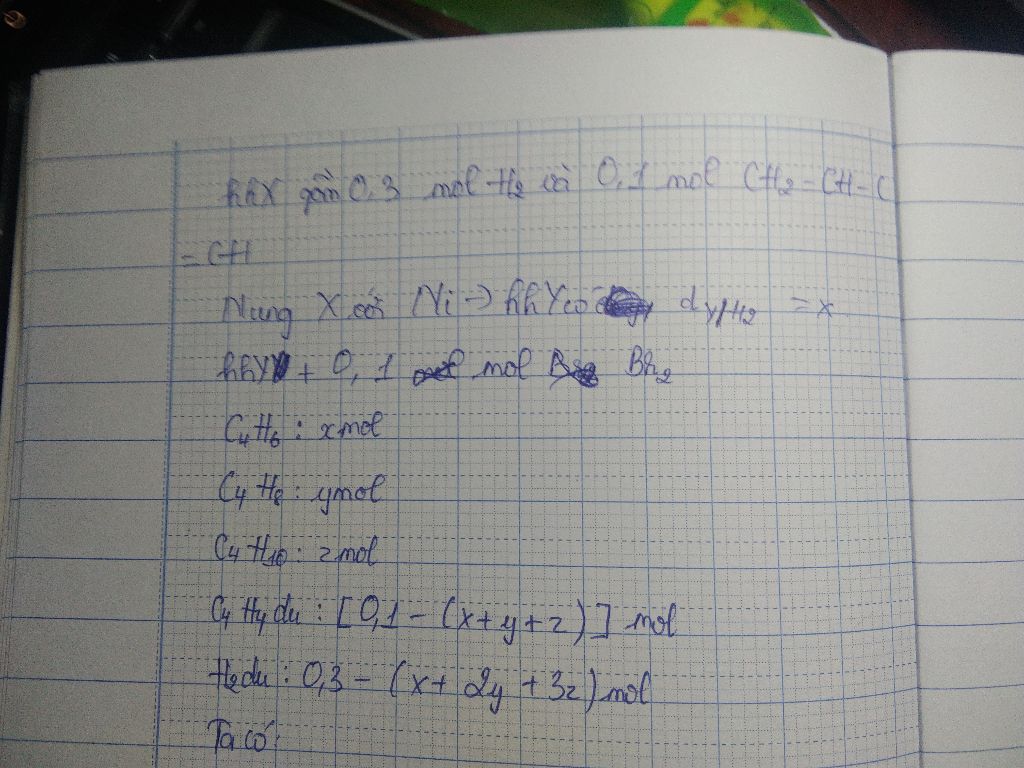 hhX gồm 0,3 mol H₂ và 0,1 mol CH₂=CH-C
≡CH
Nung X với Ni → hhY có d Y/H₂ = x
hhY + 0,1 mol Br₂
C₄H₆ : x mol
C₄H₈ : y mol
C₄H₁₀ : z mol
C₄H₄ dư : [0,1 - (x+y+z)] mol
H₂ dư : 0,3 - (x+2y+3z) mol
Ta có: